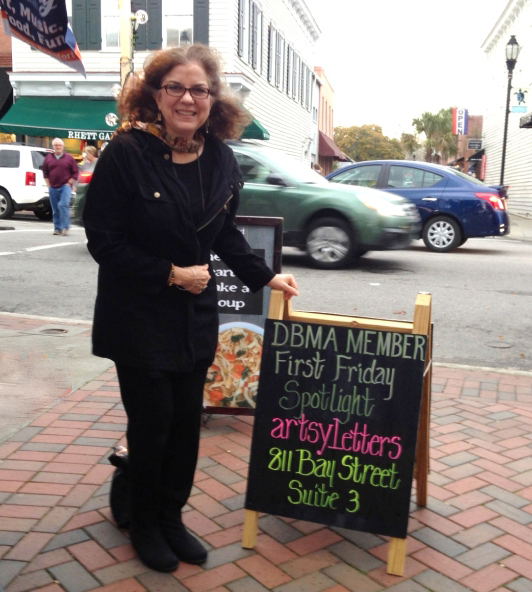 t, Music,
ood, Fun
RHETT GA
OPEN
ake a
oup
DBMA MEMBER
First Friday
Spotlight
artsyLetters
811 Bay Street
Suite 3